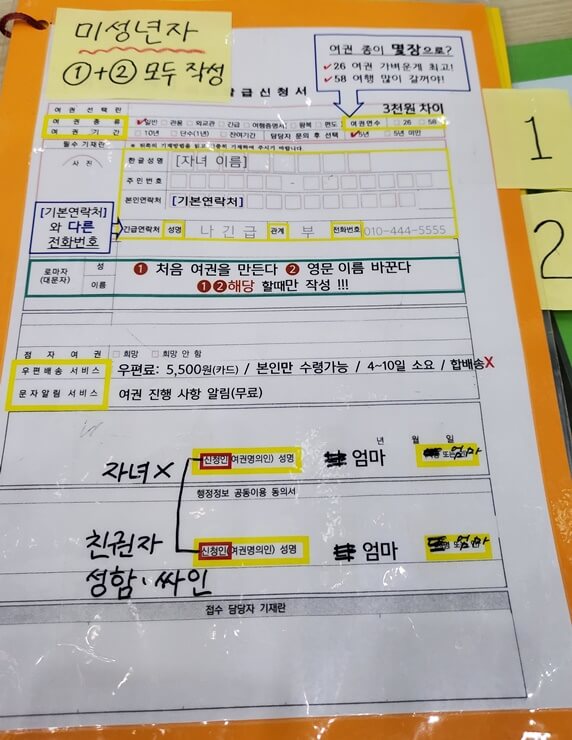 미성년자
①+② 모두 작성
여권 종이 몇장으로?
✓26 여권 가벼운게 최고!
✓58 여행 많이 갈꺼야!
급신청서
3천원 차이
여권 선택란
여권종류 일반 관용 외교관 긴급 여행증명서 왕복 편도 여권면수 26 58
여권기간 10년 단수(1년) 잔여기간 담당자 문의 후 선택 5년 5년 미만
필수 기재란
사진
한글성명 [자녀 이름]
주민번호
본인연락처 [기본연락처]
[기본연락처]
와 다른
전화번호
긴급연락처 성명 나긴급 관계 부 전화번호 010-444-5555
로마자
(대문자)
성
이름
❶ 처음 여권을 만든다 ❷ 영문 이름 바꾼다
❶❷해당 할때만 작성 !!!
점자여권 희망 희망 안 함
우편배송 서비스 우편료: 5,500원(카드) / 본인만 수령가능 / 4~10일 소요 / 합배송X
문자알림 서비스 여권 진행 사항 알림(무료)
년 월 일
자녀X
신청인(여권명의인) 성명 엄마 엄마
행정정보 공동이용 동의서
친권자
성함·싸인
신청인(여권명의인) 성명 엄마 엄마
접수 담당자 기재란
1
2